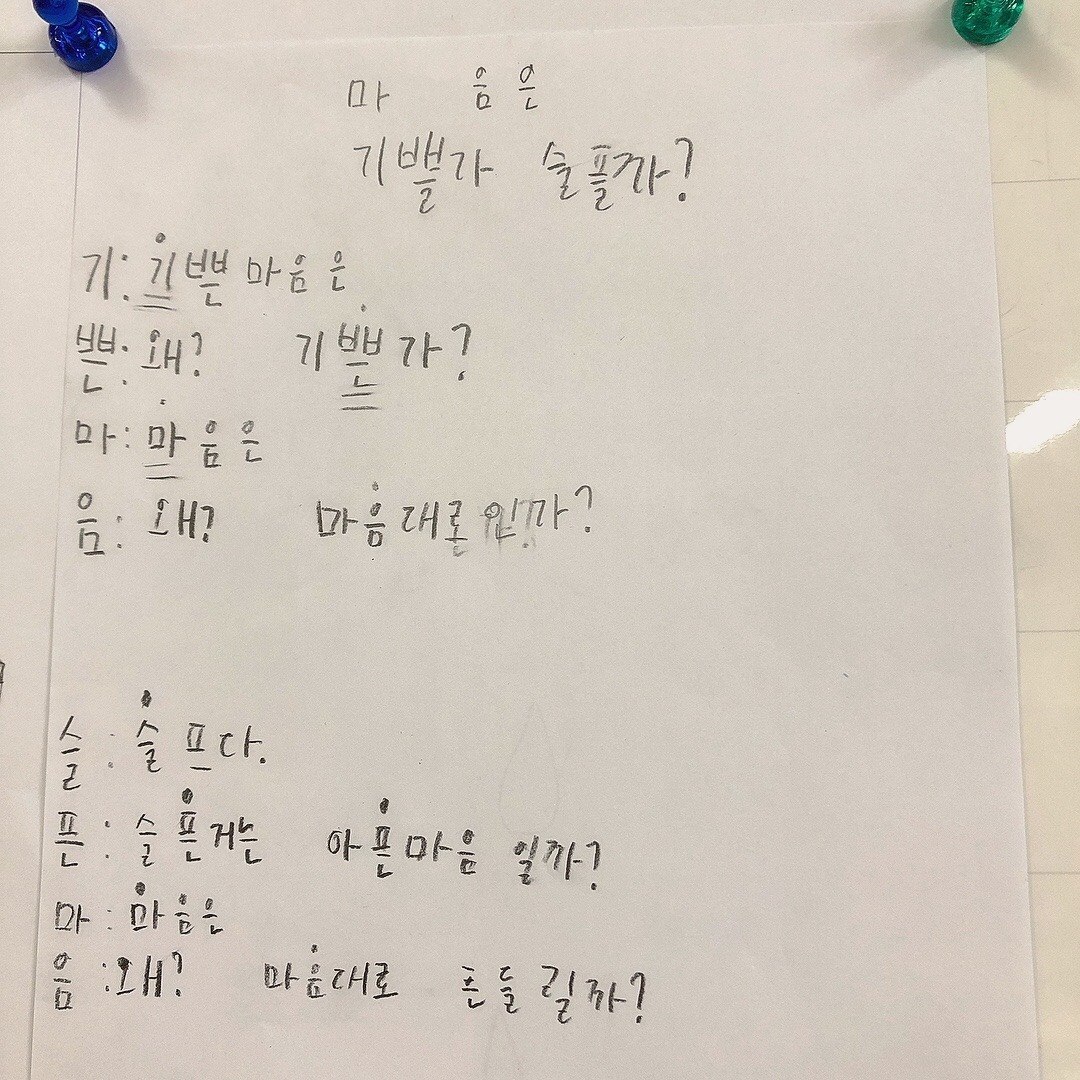 마 음은
기쁠가 슬플까?
기: 기쁜마음은
쁜: 왜? 기쁜가?
마: 마음은
음: 왜? 마음대로 인가?
슬: 슬프다.
픈: 슬픈거는 아픈마음 일까?
마: 마음은
음: 왜? 마음대로 흔들릴까?